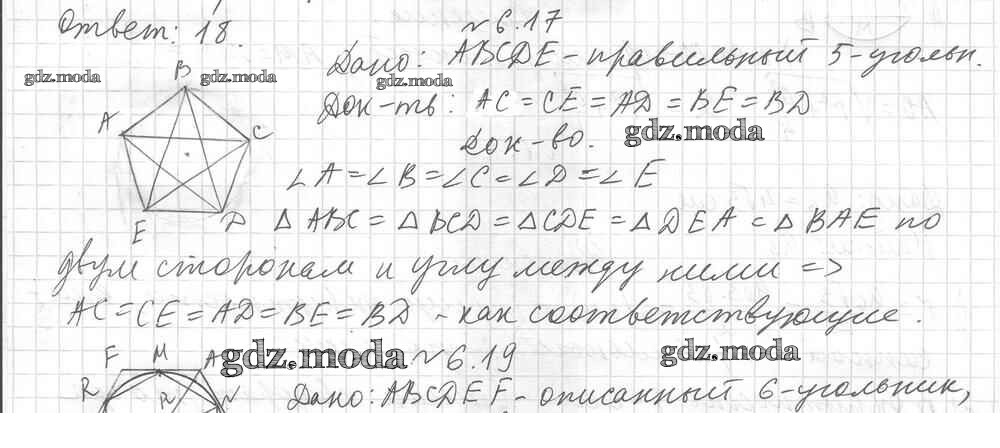 Ответ: 18.
№ 6.17
Дано: ABCDE - правильный 5-угольн.
gdz.moda gdz.moda gdz.moda
B
Док-ть: AC = CE = AD = BE = BD
A C
Док-во. gdz.moda
∠A = ∠B = ∠C = ∠D = ∠E
E D
△ABC = △BCD = △CDE = △DEA = △BAE по
двум сторонам и углу между ними =>
AC = CE = AD = BE = BD - как соответствующие.
F M A gdz.moda № 6.19 gdz.moda
R N
Дано: ABCDEF - описанный 6-угольник,